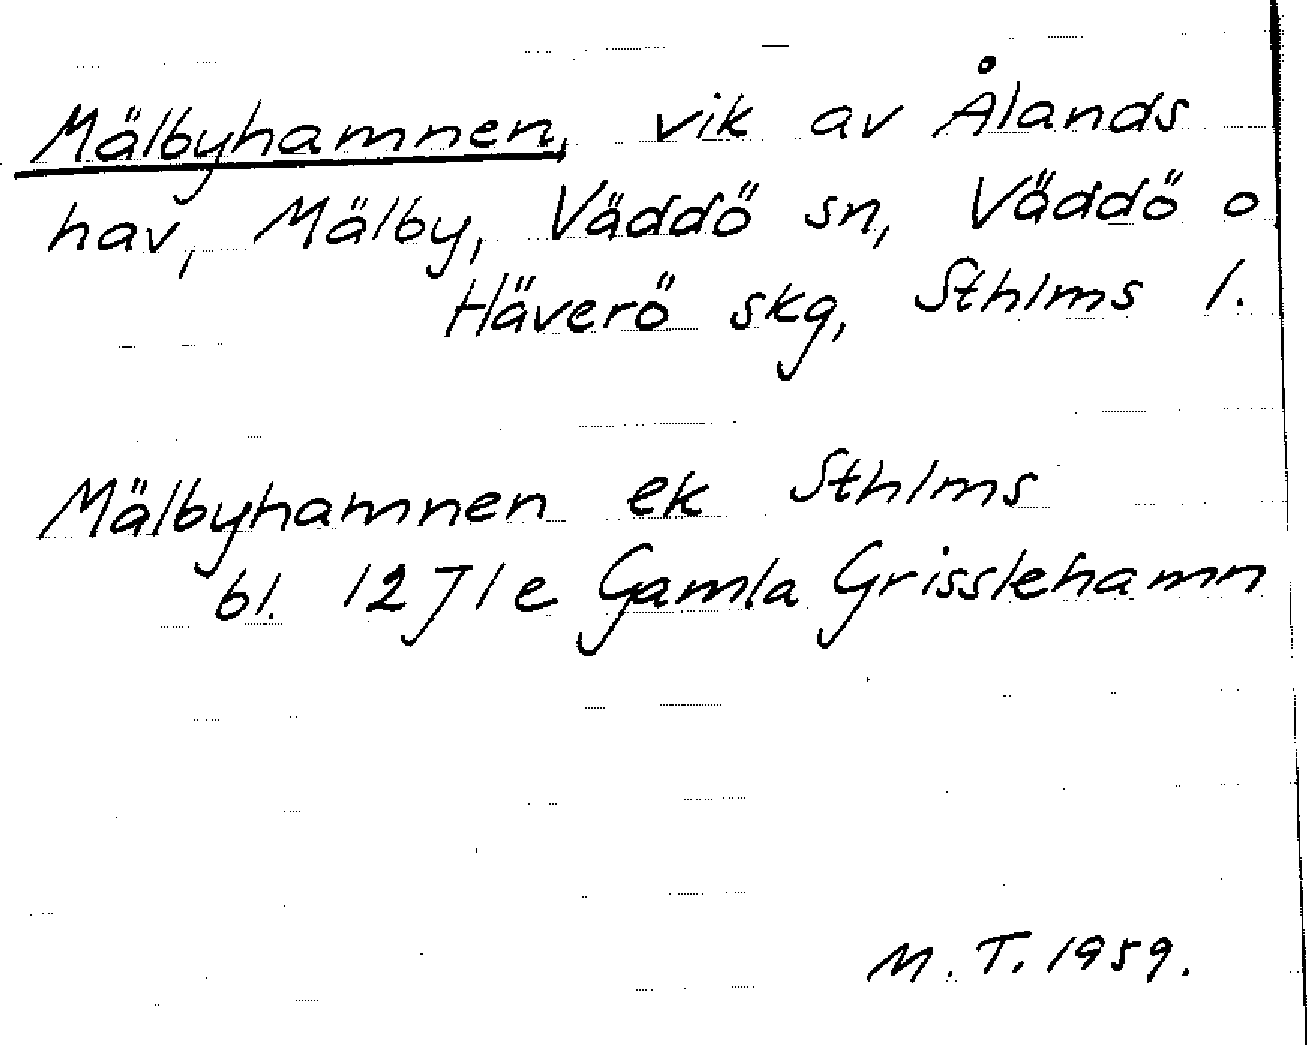 Mälbyhamnen, vik av Ålands
hav, Mälby, Väddö sn, Väddö o
Häverö skg, Sthlms l.
Mälbyhamnen ek Sthlms
bl. 12 J 1 e Gamla Grisslehamn
M. T. 1959.